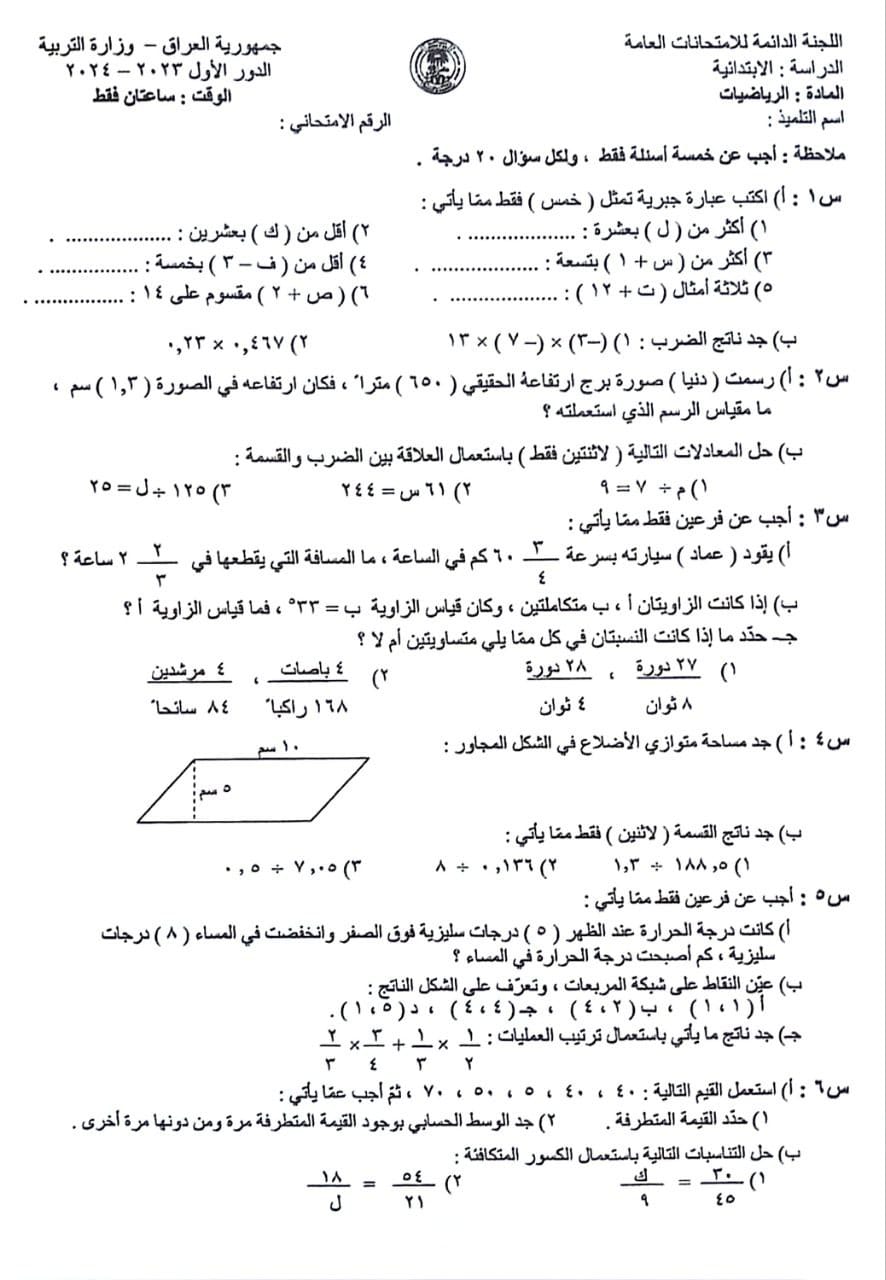 اللجنة الدائمة للامتحانات العامة
الدراسة : الابتدائية
المادة : الرياضيات
اسم التلميذ :
جمهورية العراق – وزارة التربية
الدور الأول ٢٠٢٣ – ٢٠٢٤
الوقت : ساعتان فقط
الرقم الامتحاني :
ملاحظة : أجب عن خمسة أسئلة فقط ، ولكل سؤال ٢٠ درجة .
س١ : أ) اكتب عبارة جبرية تمثل ( خمس ) فقط ممّا يأتي :
١) أكثر من ( ل ) بعشرة : .................... . ٢) أقل من ( ك ) بعشرين : .................... .
٣) أكثر من ( س + ١ ) بتسعة : .................... . ٤) أقل من ( ف – ٣ ) بخمسة : ................. .
٥) ثلاثة أمثال ( ت + ١٢ ) : .................... . ٦) ( ص + ٢ ) مقسوم على ١٤ : ................ .
ب) جد ناتج الضرب : ١) (–٣) × (– ٧ ) × ١٣ ٢) ٠,٤٦٧ × ٠,٢٣
س٢ : أ) رسمت ( دنيا ) صورة برج ارتفاعهُ الحقيقي ( ٦٥٠ ) متراً ، فكان ارتفاعه في الصورة ( ١,٣ ) سم ،
ما مقياس الرسم الذي استعملته ؟
ب) حل المعادلات التالية ( لاثنتين فقط ) باستعمال العلاقة بين الضرب والقسمة :
١) م ÷ ٧ = ٩ ٢) ٦١ س = ٢٤٤ ٣) ١٢٥ ÷ ل = ٢٥
س٣ : أجب عن فرعين فقط ممّا يأتي :
أ) يقود ( عماد ) سيارته بسرعة ٣/٤ ٦٠ كم في الساعة ، ما المسافة التي يقطعها في ٢/٣ ٢ ساعة ؟
ب) إذا كانت الزاويتان أ ، ب متكاملتين ، وكان قياس الزاوية ب = ٣٣° ، فما قياس الزاوية أ ؟
جـ حدّد ما إذا كانت النسبتان في كل ممّا يلي متساويتين أم لا ؟
١) ٢٧ دورة / ٨ ثوان ، ٢٨ دورة / ٤ ثوان ٢) ٤ باصات / ١٦٨ راكباً ، ٤ مرشدين / ٨٤ سائحاً
س٤ : أ ) جد مساحة متوازي الأضلاع في الشكل المجاور :
١٠ سم
٥ سم
ب) جد ناتج القسمة ( لاثنين ) فقط ممّا يأتي :
١) ١٨٨,٥ ÷ ١,٣ ٢) ٠,١٣٦ ÷ ٨ ٣) ٧,٠٥ ÷ ٠,٥
س٥ : أجب عن فرعين فقط ممّا يأتي :
أ) كانت درجة الحرارة عند الظهر ( ٥ ) درجات سليزية فوق الصفر وانخفضت في المساء ( ٨ ) درجات
سليزية ، كم أصبحت درجة الحرارة في المساء ؟
ب) عيّن النقاط على شبكة المربعات ، وتعرّف على الشكل الناتج :
أ ( ١ ، ١ ) ، ب ( ٢ ، ٤ ) ، جـ ( ٤ ، ٤ ) ، د ( ٥ ، ١ ) .
جـ) جد ناتج ما يأتي باستعمال ترتيب العمليات : ١/٢ × ١/٣ + ٣/٤ × ٢/٣
س٦ : أ) استعمل القيم التالية : ٤٠ ، ٤٠ ، ٥ ، ٥٠ ، ٧٠ ، ثمّ أجب عمّا يأتي :
١) حدّد القيمة المتطرفة . ٢) جد الوسط الحسابي بوجود القيمة المتطرفة مرة ومن دونها مرة أخرى .
ب) حل التناسبات التالية باستعمال الكسور المتكافئة :
١) ٣٠/٤٥ = ك/٩ ٢) ٥٤/٢١ = ١٨/ل